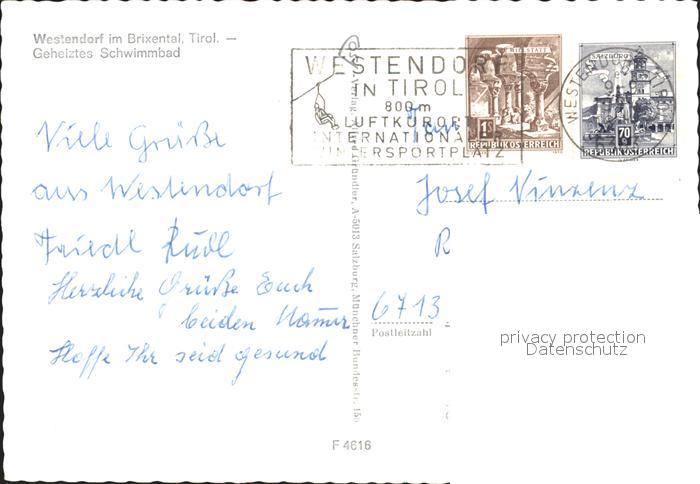 Westendorf im Brixental, Tirol. —
Geheiztes Schwimmbad
WESTENDORF
IN TIROL
800m
LUFTKURORT
INTERNATIONA
WINTERSPORTPLATZ
MILLSTATT
1S
REPUBLIK ÖSTERREICH
SALZBURG
70
REPUBLIK ÖSTERREICH
WESTENDORF
Viele Grüße
aus Westendorf
Friedl Rudl
Herzliche Grüße Euch
beiden
Hoffe Ihr seid gesund
Fam
Josef Vinzenz
R
6713
Postleitzahl
Verlag Gründler, A-5013 Salzburg, Münchner Bundesstr. 150
F 4616
privacy protection
Datenschutz